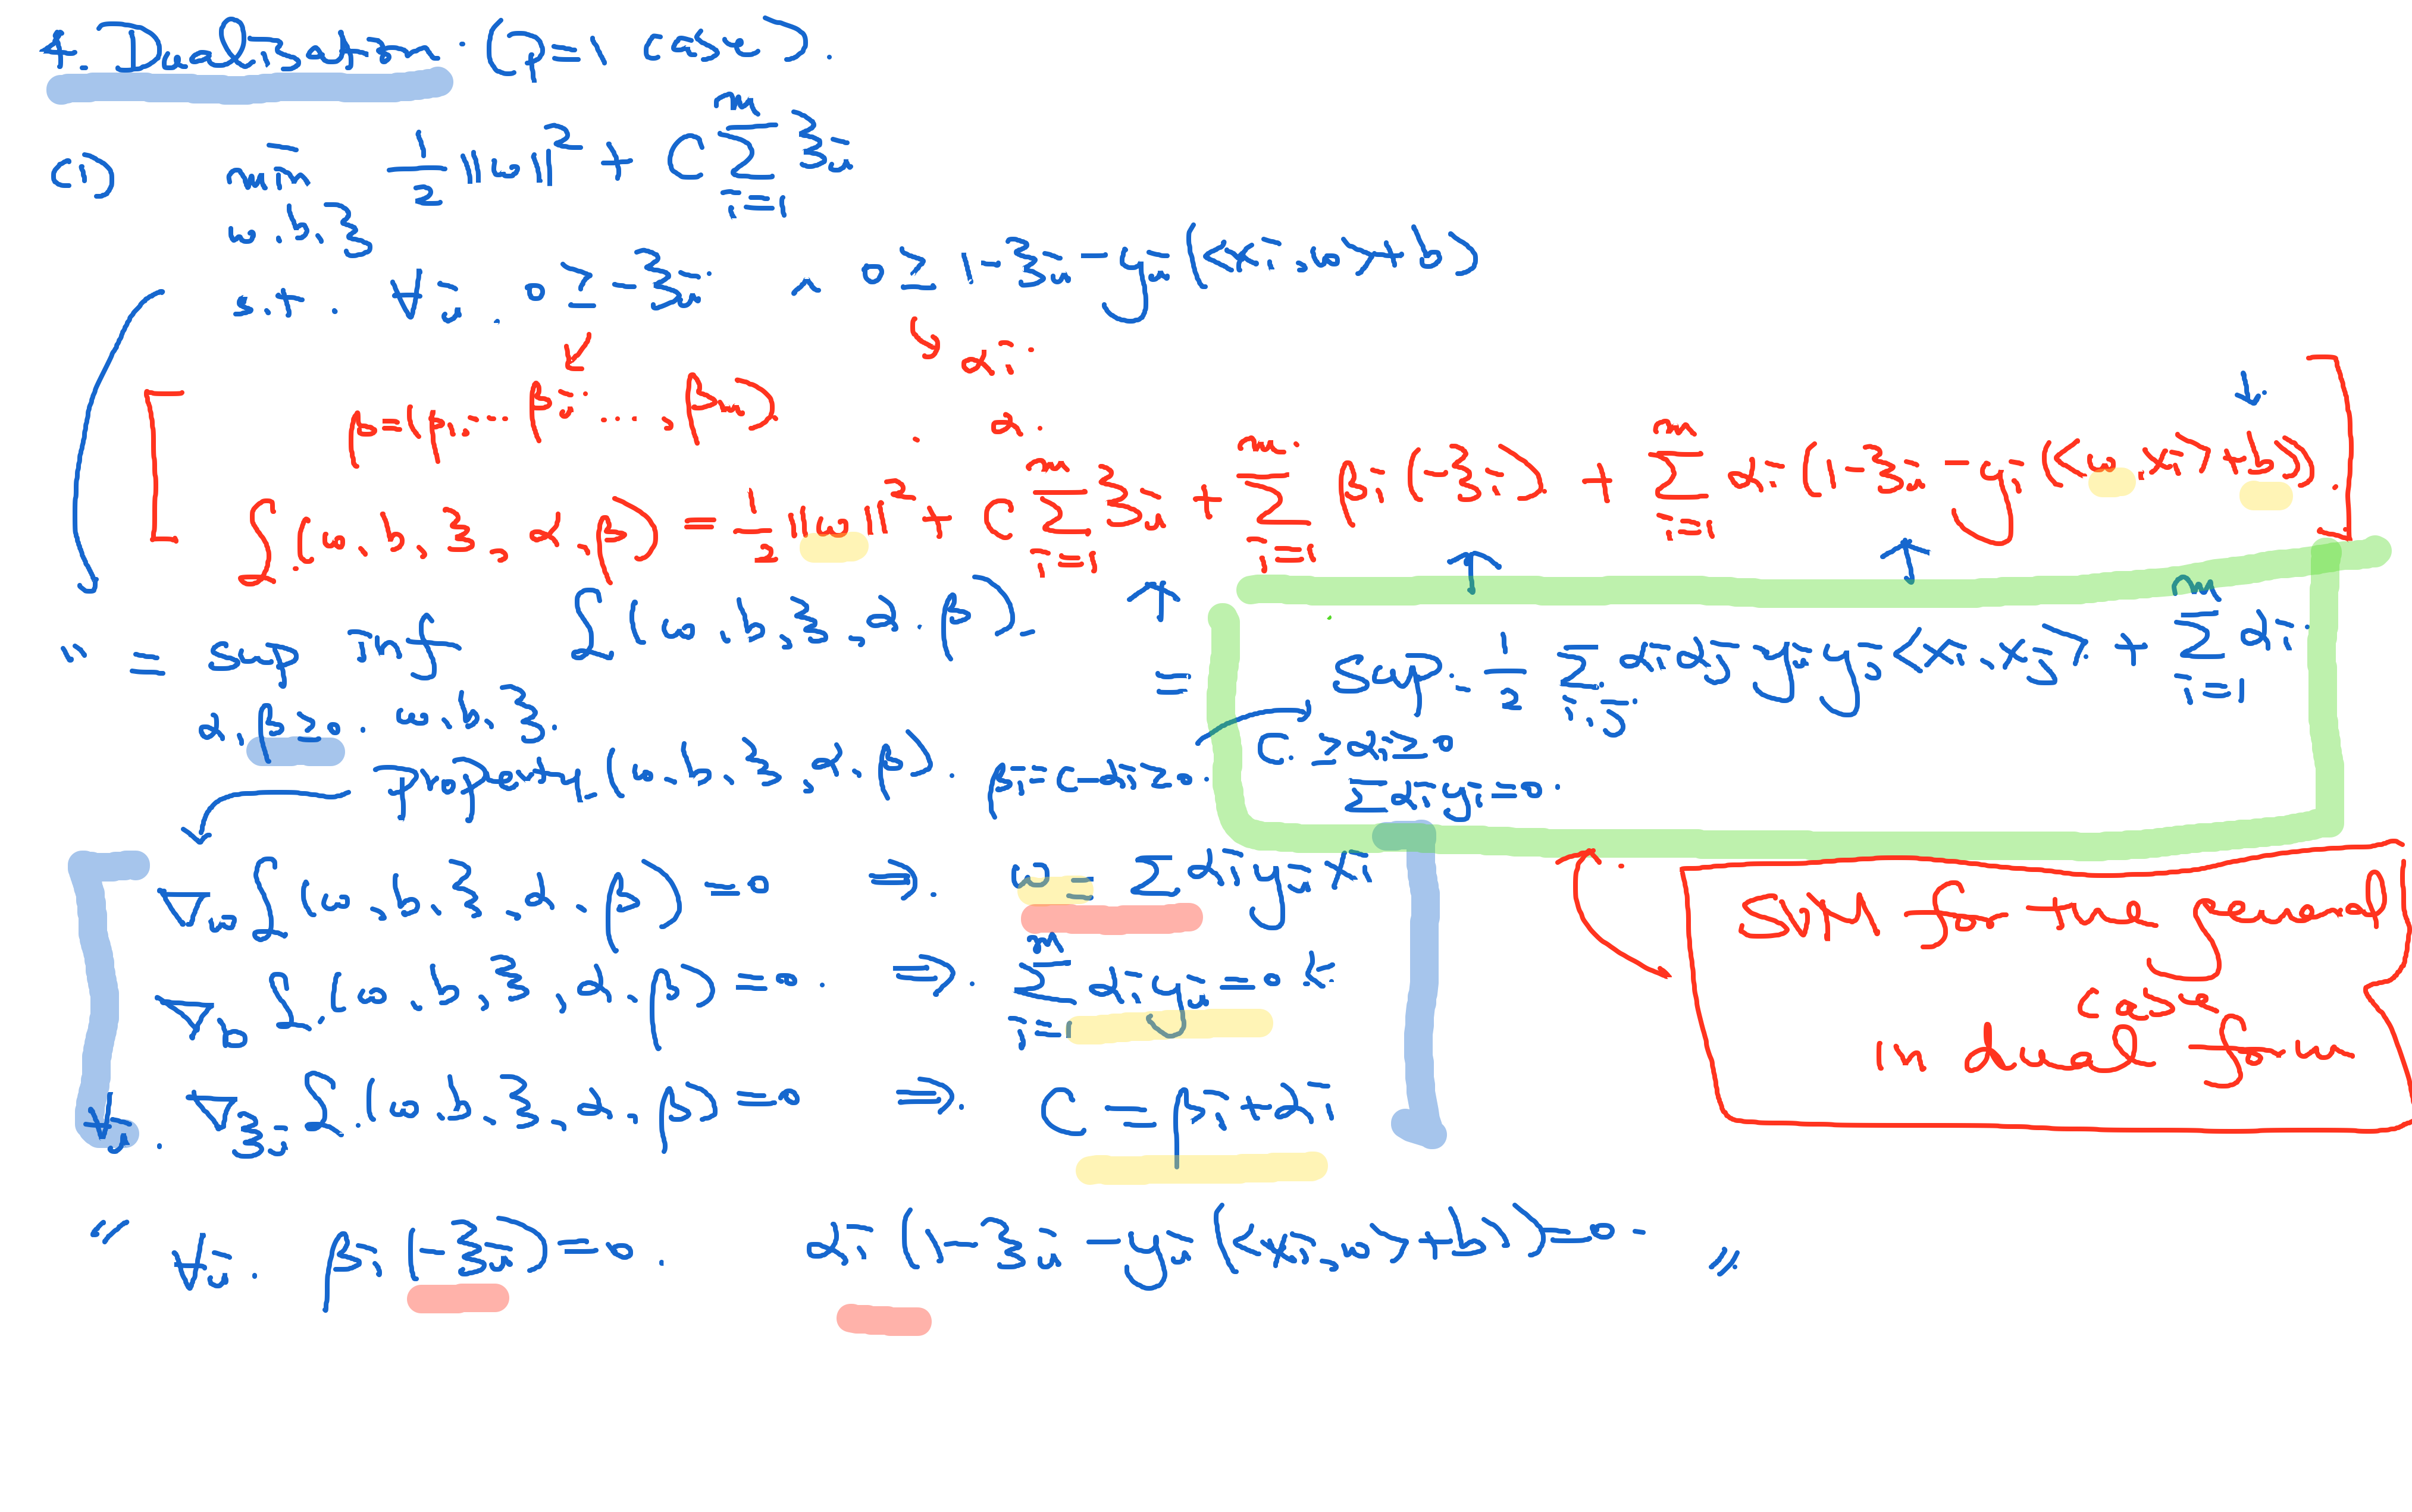 4. Dualization. (p=1 case).
(i) min_{w.b.ξ} 1/2 ||w||² + C Σ_{i=1}^{m} ξi
s.t. ∀i. 0 ≥ -ξi ∧ 0 ≥ 1-ξi-yi(<xi,w>+b)
αi
β=(β1....βi....,βm) α.
L(w,b,ξ,α,β) = 1/2 ||w||² + C Σ_{i=1}^{m} ξi + Σ_{i=1}^{m} βi(-ξi) + Σ_{i=1}^{m} αi(1-ξi-yi(<w,xi>+b)).
= sup_{α,β≥0.} inf_{w.b.ξ.} L(w.b,ξ,α.β).
= sup_{C≥αi≥0, Σαiyi=0.} -1/2 Σ_{i,j} αiαj yiyj <xi,xj> + Σ_{i=1}^{m} αi.
Property (w.b.ξ,α.β). βi=C-αi≥0.
∇w L(w,b,ξ,α.β)=0 ⇒. w = Σ αi yi xi
∇b L(w,b,ξ,α.β)=0. ⇒. Σ_{i=1}^{m} αi yi=0
∀i. ∇ξi L(w,b,ξ,α,β)=0 ⇒. C = βi+αi
SVM for the general
case
in dual form
" ∀i. βi(-ξi)=0. αi(1-ξi-yi(<xi,w>+b))=0. "